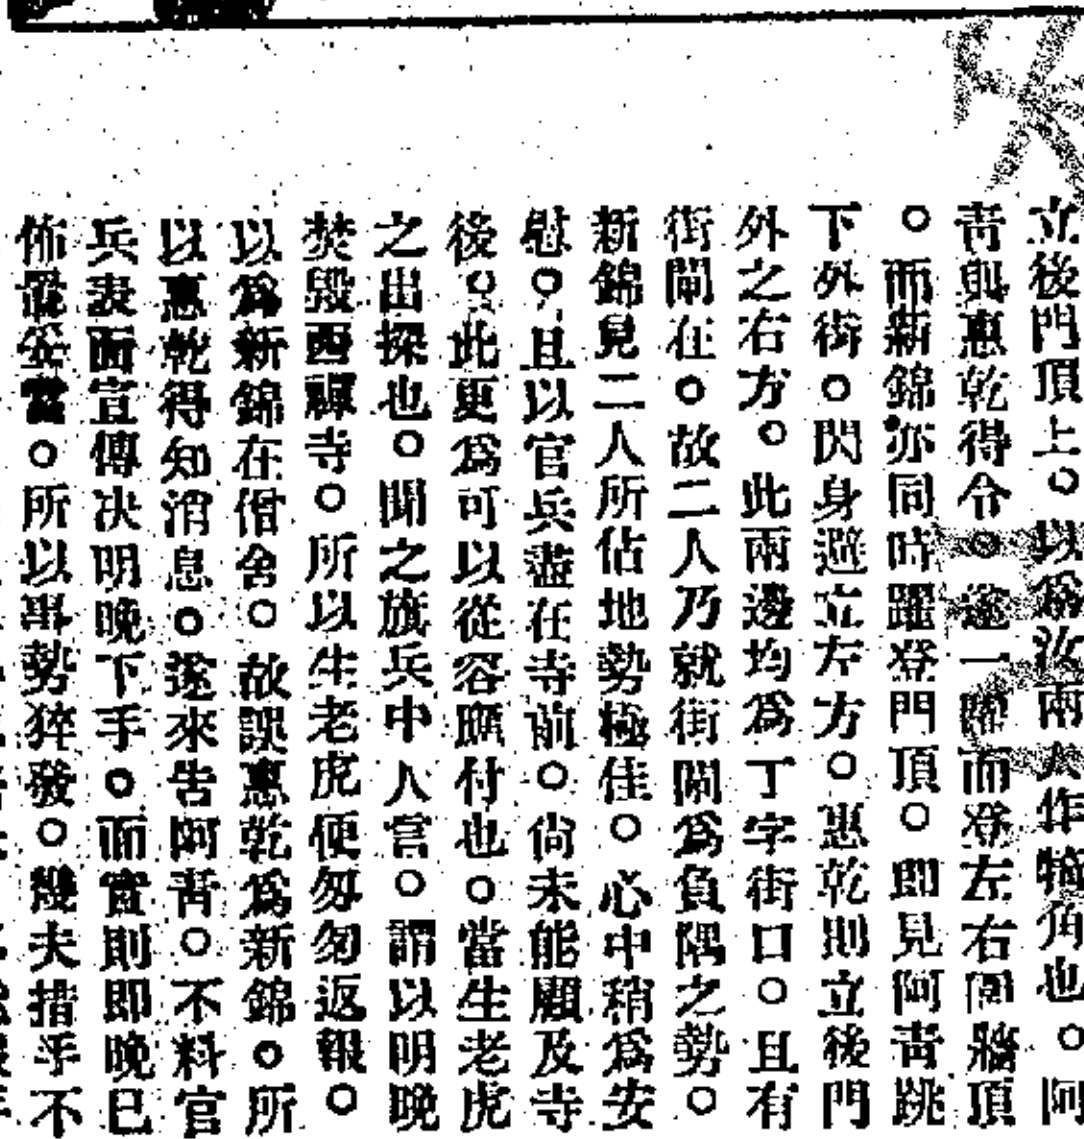 立後門頂上。以爲汝兩人作犄角也。阿
靑與惠乾得令。遂一躍而登左右圍牆頂
。而新錦亦同時躍登門頂。即見阿靑跳
下外街。閃身避立左方。惠乾則立後門
外之右方。此兩邊均爲丁字街口。且有
街閘在。故二人乃就街閘爲負隅之勢。
新錦見二人所佔地勢極佳。心中稍爲安
慰。且以官兵盡在寺前。尙未能顧及寺
後。此更爲可以從容應付也。當生老虎
之出探也。聞之旗兵中人言。謂以明晚
焚毀西禪寺。所以生老虎便匆匆返報。
以爲新錦在僧舍。故誤惠乾爲新錦。所
以惠乾得知消息。遂來告阿靑。不料官
兵表面宣傳决明晚下手。而實則即晚已
佈置妥當。所以事勢猝發。幾夫措手不